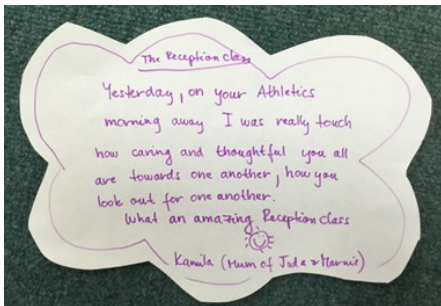 The Reception class
Yesterday, on your Athletics
morning away I was really touch
how caring and thoughtful you all
are towards one another, how you
look out for one another.
What an amazing Reception class
Kamila (Mum of Jude & Marnie)